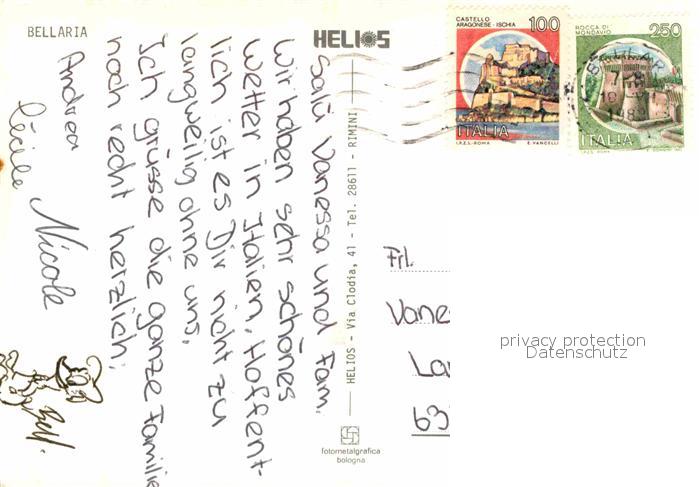 BELLARIA
HELIOS
Salü Vanessa und Fam.
Wir haben sehr schönes
Wetter in Italien. Hoffent-
lich ist es Dir nicht zu
langweilig ohne uns.
Ich grüsse die ganze Familie
noch recht herzlich.
Andrea
Cécile Nicole
HELIOS - Via Clodia, 41 - Tel. 28611 - RIMINI
fotometalgrafica
bologna
CASTELLO
ARAGONESE - ISCHIA
100
ITALIA
I.P.Z.S. - ROMA E. VANCELLI
ROCCA DI
MONDAVIO
250
ITALIA
I.P.Z.S. - ROMA
Frl.
Vane
La
63
privacy protection
Datenschutz